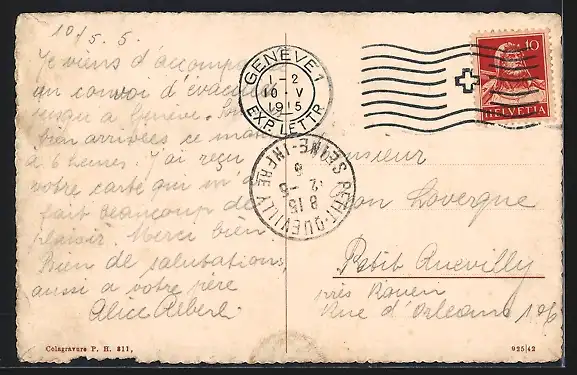 10/5. 5.
Je viens d'accomp
un convoi d'évacu
venu à Genève.
bien arrivées ce
à 6 heures. J'ai reçu
votre carte qui m'
fait beaucoup de
plaisir. Merci bien
Bien de salutations,
aussi a votre père
Alice
GENÈVE 1
1-2
10-V
1915
EXP. LETTR.
10
HELVETIA
PETIT-QUEVILLY
SEINE-INFRE
Monsieur
Lavergne
Petit Quevilly
près Rouen
Rue d'Orléans 106
Colagravure P. H. 311,
925/42